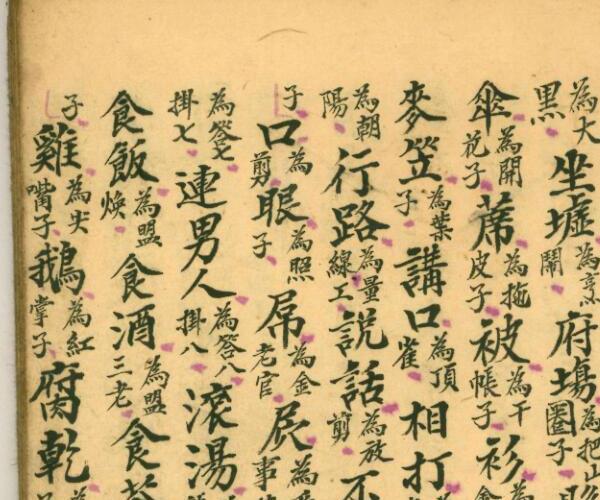 黑 為大 坐墟 為烹鬧 府場 為把山圈子
傘 為開花子 蓆 為拖皮子 被 為干帳子 衫
麥笠 為葉子 講口 為頂雀 相打
為朝陽 行路 為量線工 説話 為放剪
子 口 為剪 眼 為照子 屌 為金老官 屄
為答七掛七 連男人 為答八掛八 滾湯
食飯 為盟煥 食酒 為盟三老 食
子 雞 為尖嘴子 鵝 為紅掌子 腐乾